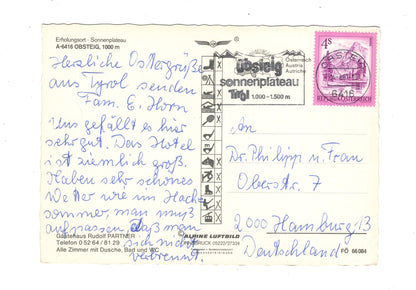 Erholungsort - Sonnenplateau
A-6416 OBSTEIG, 1000 m
Herzliche Ostergrüße
aus Tyrol senden
Fam. E. Horn
Uns gefällt es hier
sehr gut. Das Hotel
ist ziemlich groß.
Haben sehr schönes
Wetter wie im Hoch-
sommer, man muß
aufpassen, daß man
sich nicht
verbrennt.
Gästehaus Rudolf PARTNER
Telefon 0 52 64 / 81 29
Alle Zimmer mit Dusche, Bad und WC
obsteig
sonnenplateau
Tirol 1.000 - 1.500 m
Österreich
Austria
Autriche
6416
4 S
REPUBLIK ÖSTERREICH
An
Dr. Philipp u. Frau
Oberstr. 7
2000 Hamburg 13
Deutschland
ALPINE LUFTBILD
INNSBRUCK 05222/27324
FÖ 66084